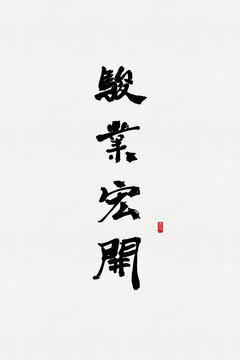 駿業宏開